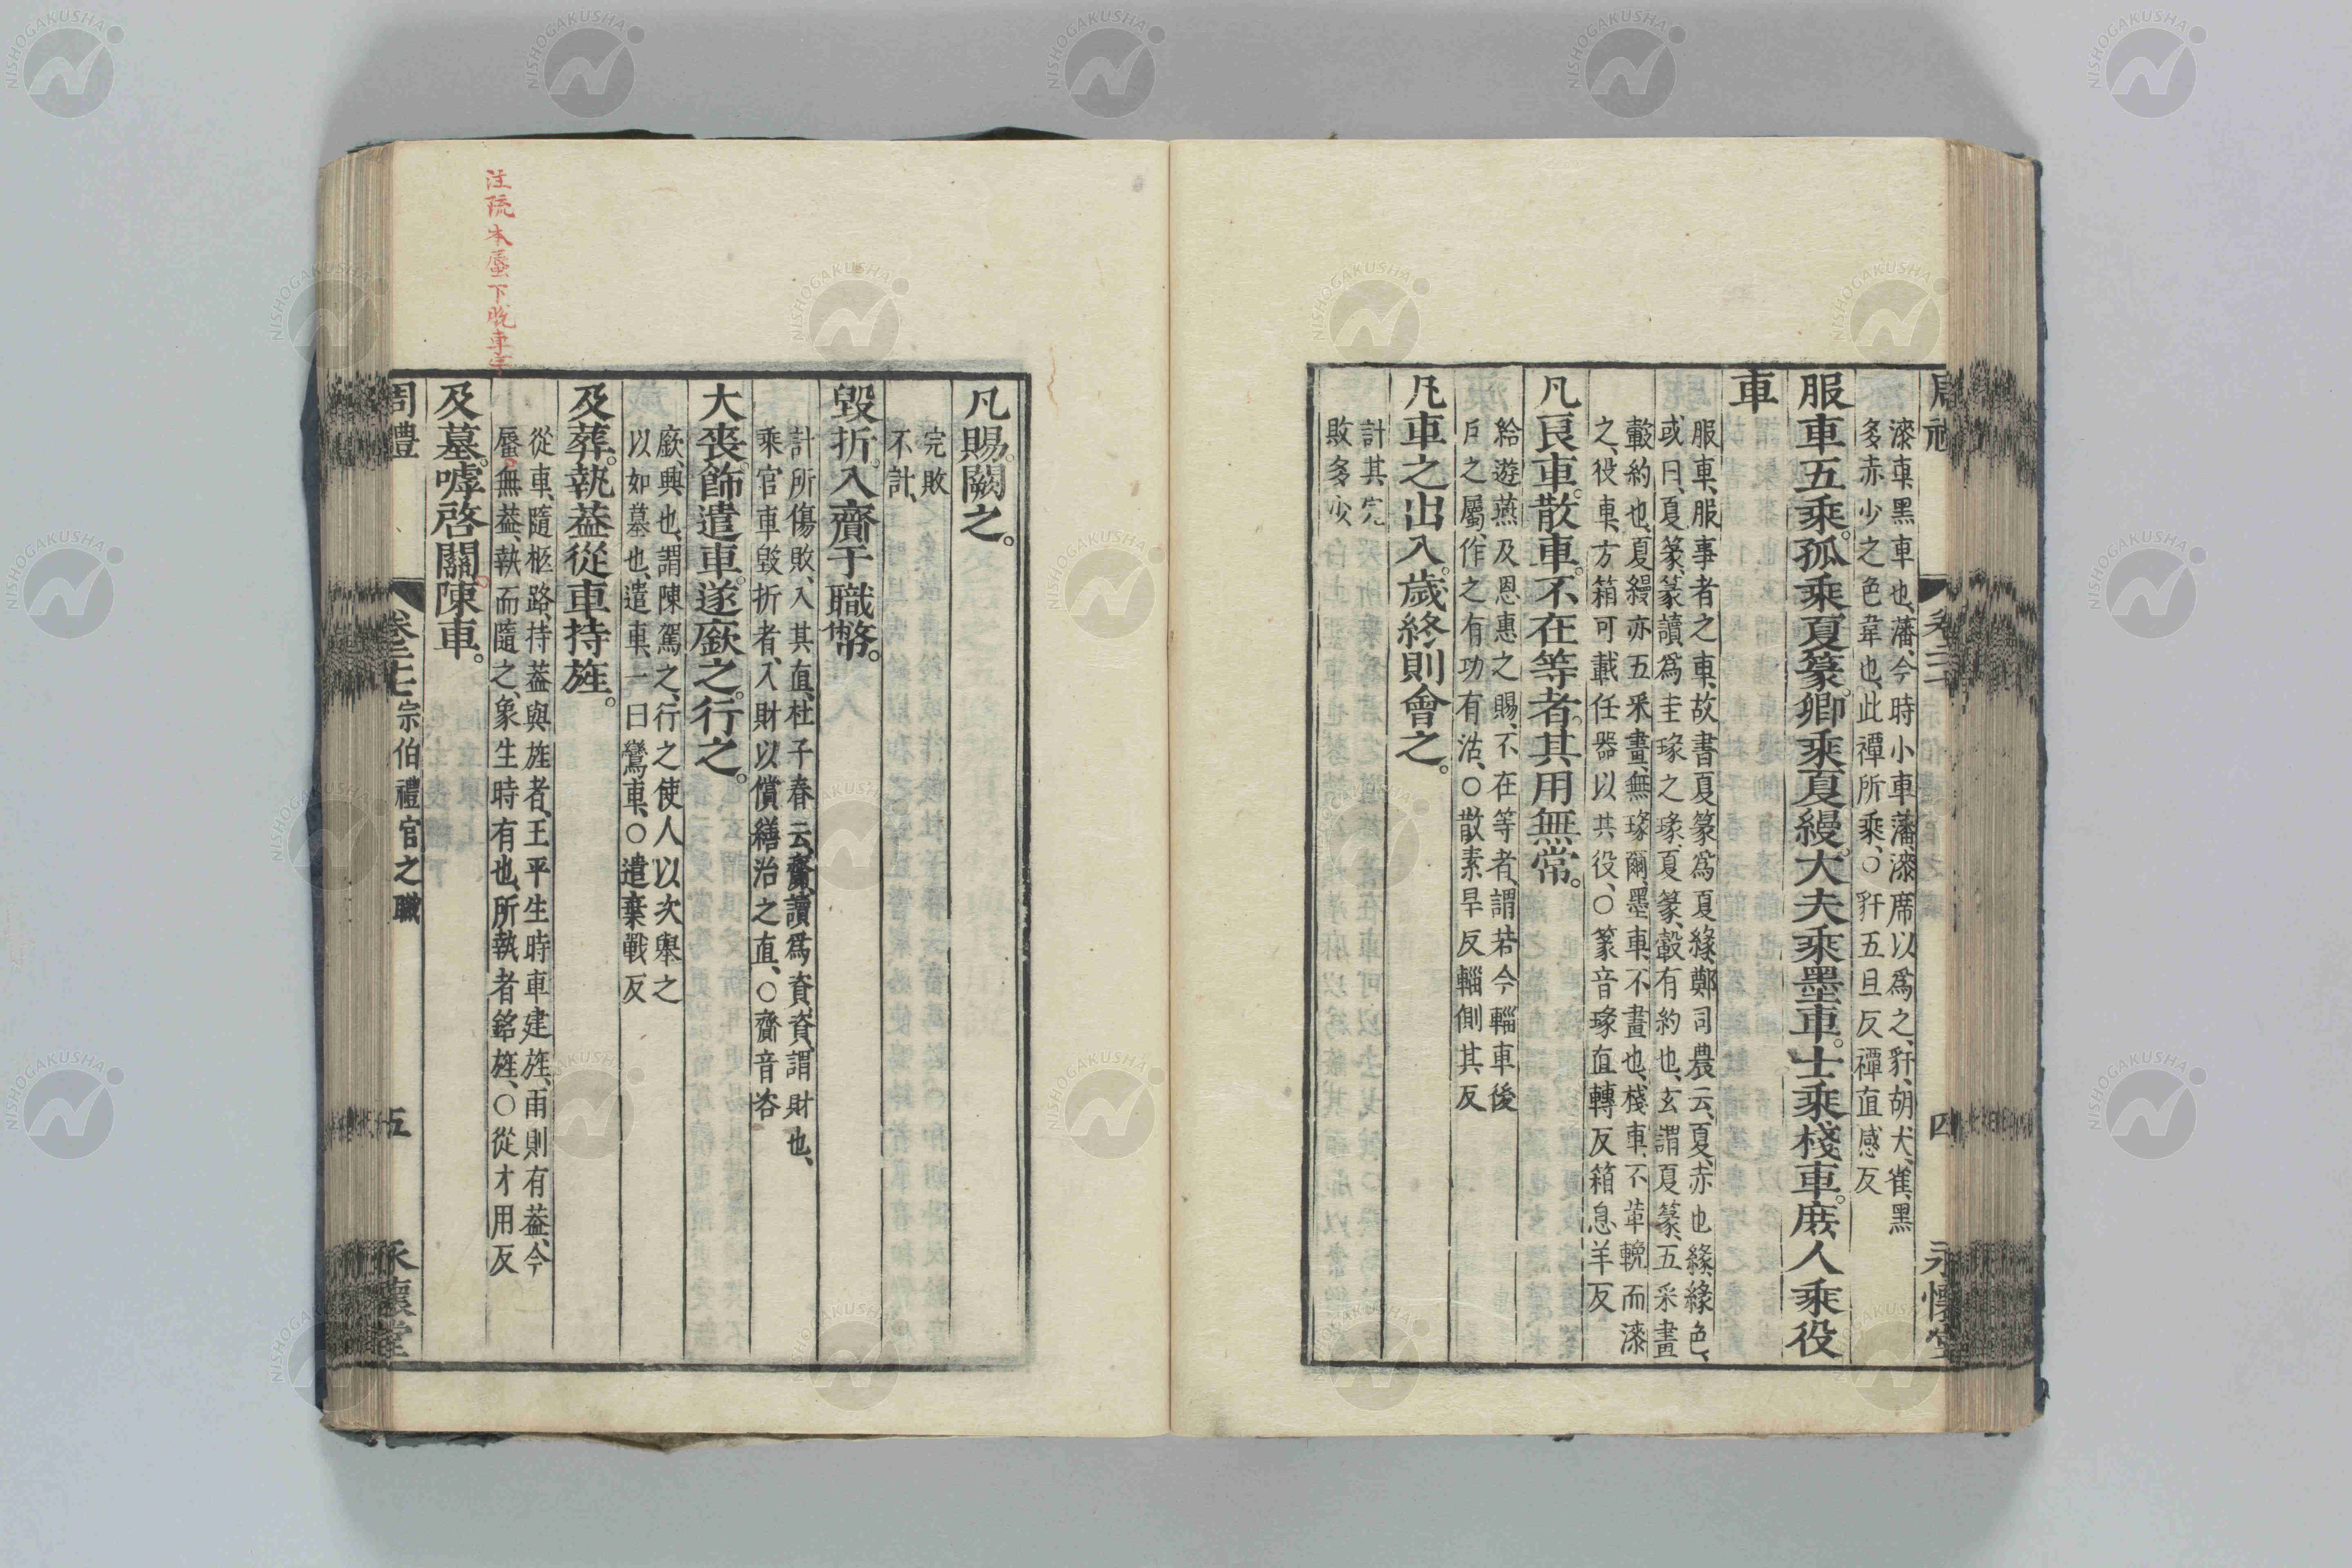 漆車、黑車也、藩、今時小車藩、漆席以爲之、豻、胡犬、雀、黑
多赤少之色韋也、此禫所乘、○豻五旦反禫直感反
服車五乘。孤乘夏篆。卿乘夏縵。大夫乘墨車。士乘棧車。庶人乘役
車
服車、服事者之車、故書夏篆爲夏緣、鄭司農云、夏、赤也、緣、緣色、
或曰、夏篆、篆讀爲圭瑑之瑑、夏篆、轂有約也、玄謂夏篆、五采畫
轂約也、夏縵亦五采畫、無瑑爾、墨車、不畫也、棧車、不革輓而漆
之、役車、方箱可載任器以共役、○篆音瑑直轉反箱息羊反
凡良車。散車。不在等者。其用無常。
給遊燕及恩惠之賜、不在等者、謂若今輜車後
戶之屬、作之有功有沽、○散素旱反輜側其反
凡車之出入。歲終則會之。
計其完
敗多少
凡賜。闕之。
完敗
不計、
毀折。入齎于職幣。
計所傷敗、入其直、杜子春云、齎、讀爲資、資、謂財也、
乘官車毀折者、入財以償繕治之直、○齎音咨
大喪。飾遣車。遂廞之。行之。
廞、興也、謂陳駕之、行之使人以次舉之
以如墓也、遣車、一曰鸞車、○遣棄戰反
及葬。執葢從車持旌。
從車、隨柩路、持葢與旌者、王平生時車建旌、雨則有葢、今
蜃無葢、執而隨之、象生時有也、所執者銘旌、○從才用反
及墓。嘑啓關。陳車。
周禮 卷二十七 宗伯禮官之職 五 永懷堂
注疏本蜃下脫車字